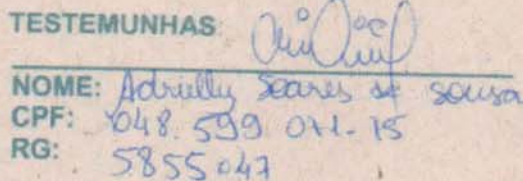 TESTEMUNHAS:
NOME: Adrielly Soares de sousa
CPF: 048.599.071-15
RG: 5855047